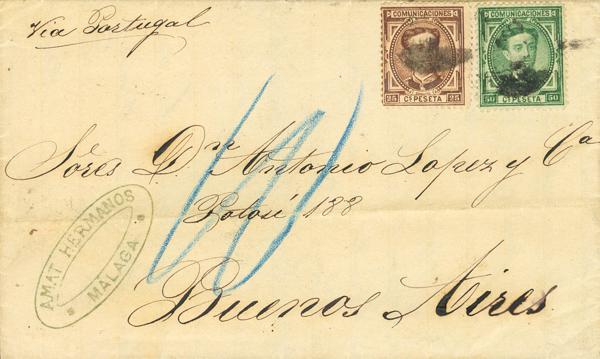 Via Portugal
COMUNICACIONES
25 Cs PESETA 25
COMUNICACIONES
50 Cs PESETA 50
Sōres Dn Antonio Lopez y Ca
Potosí 188
Buenos Aires
AMAT HERMANOS
MALAGA